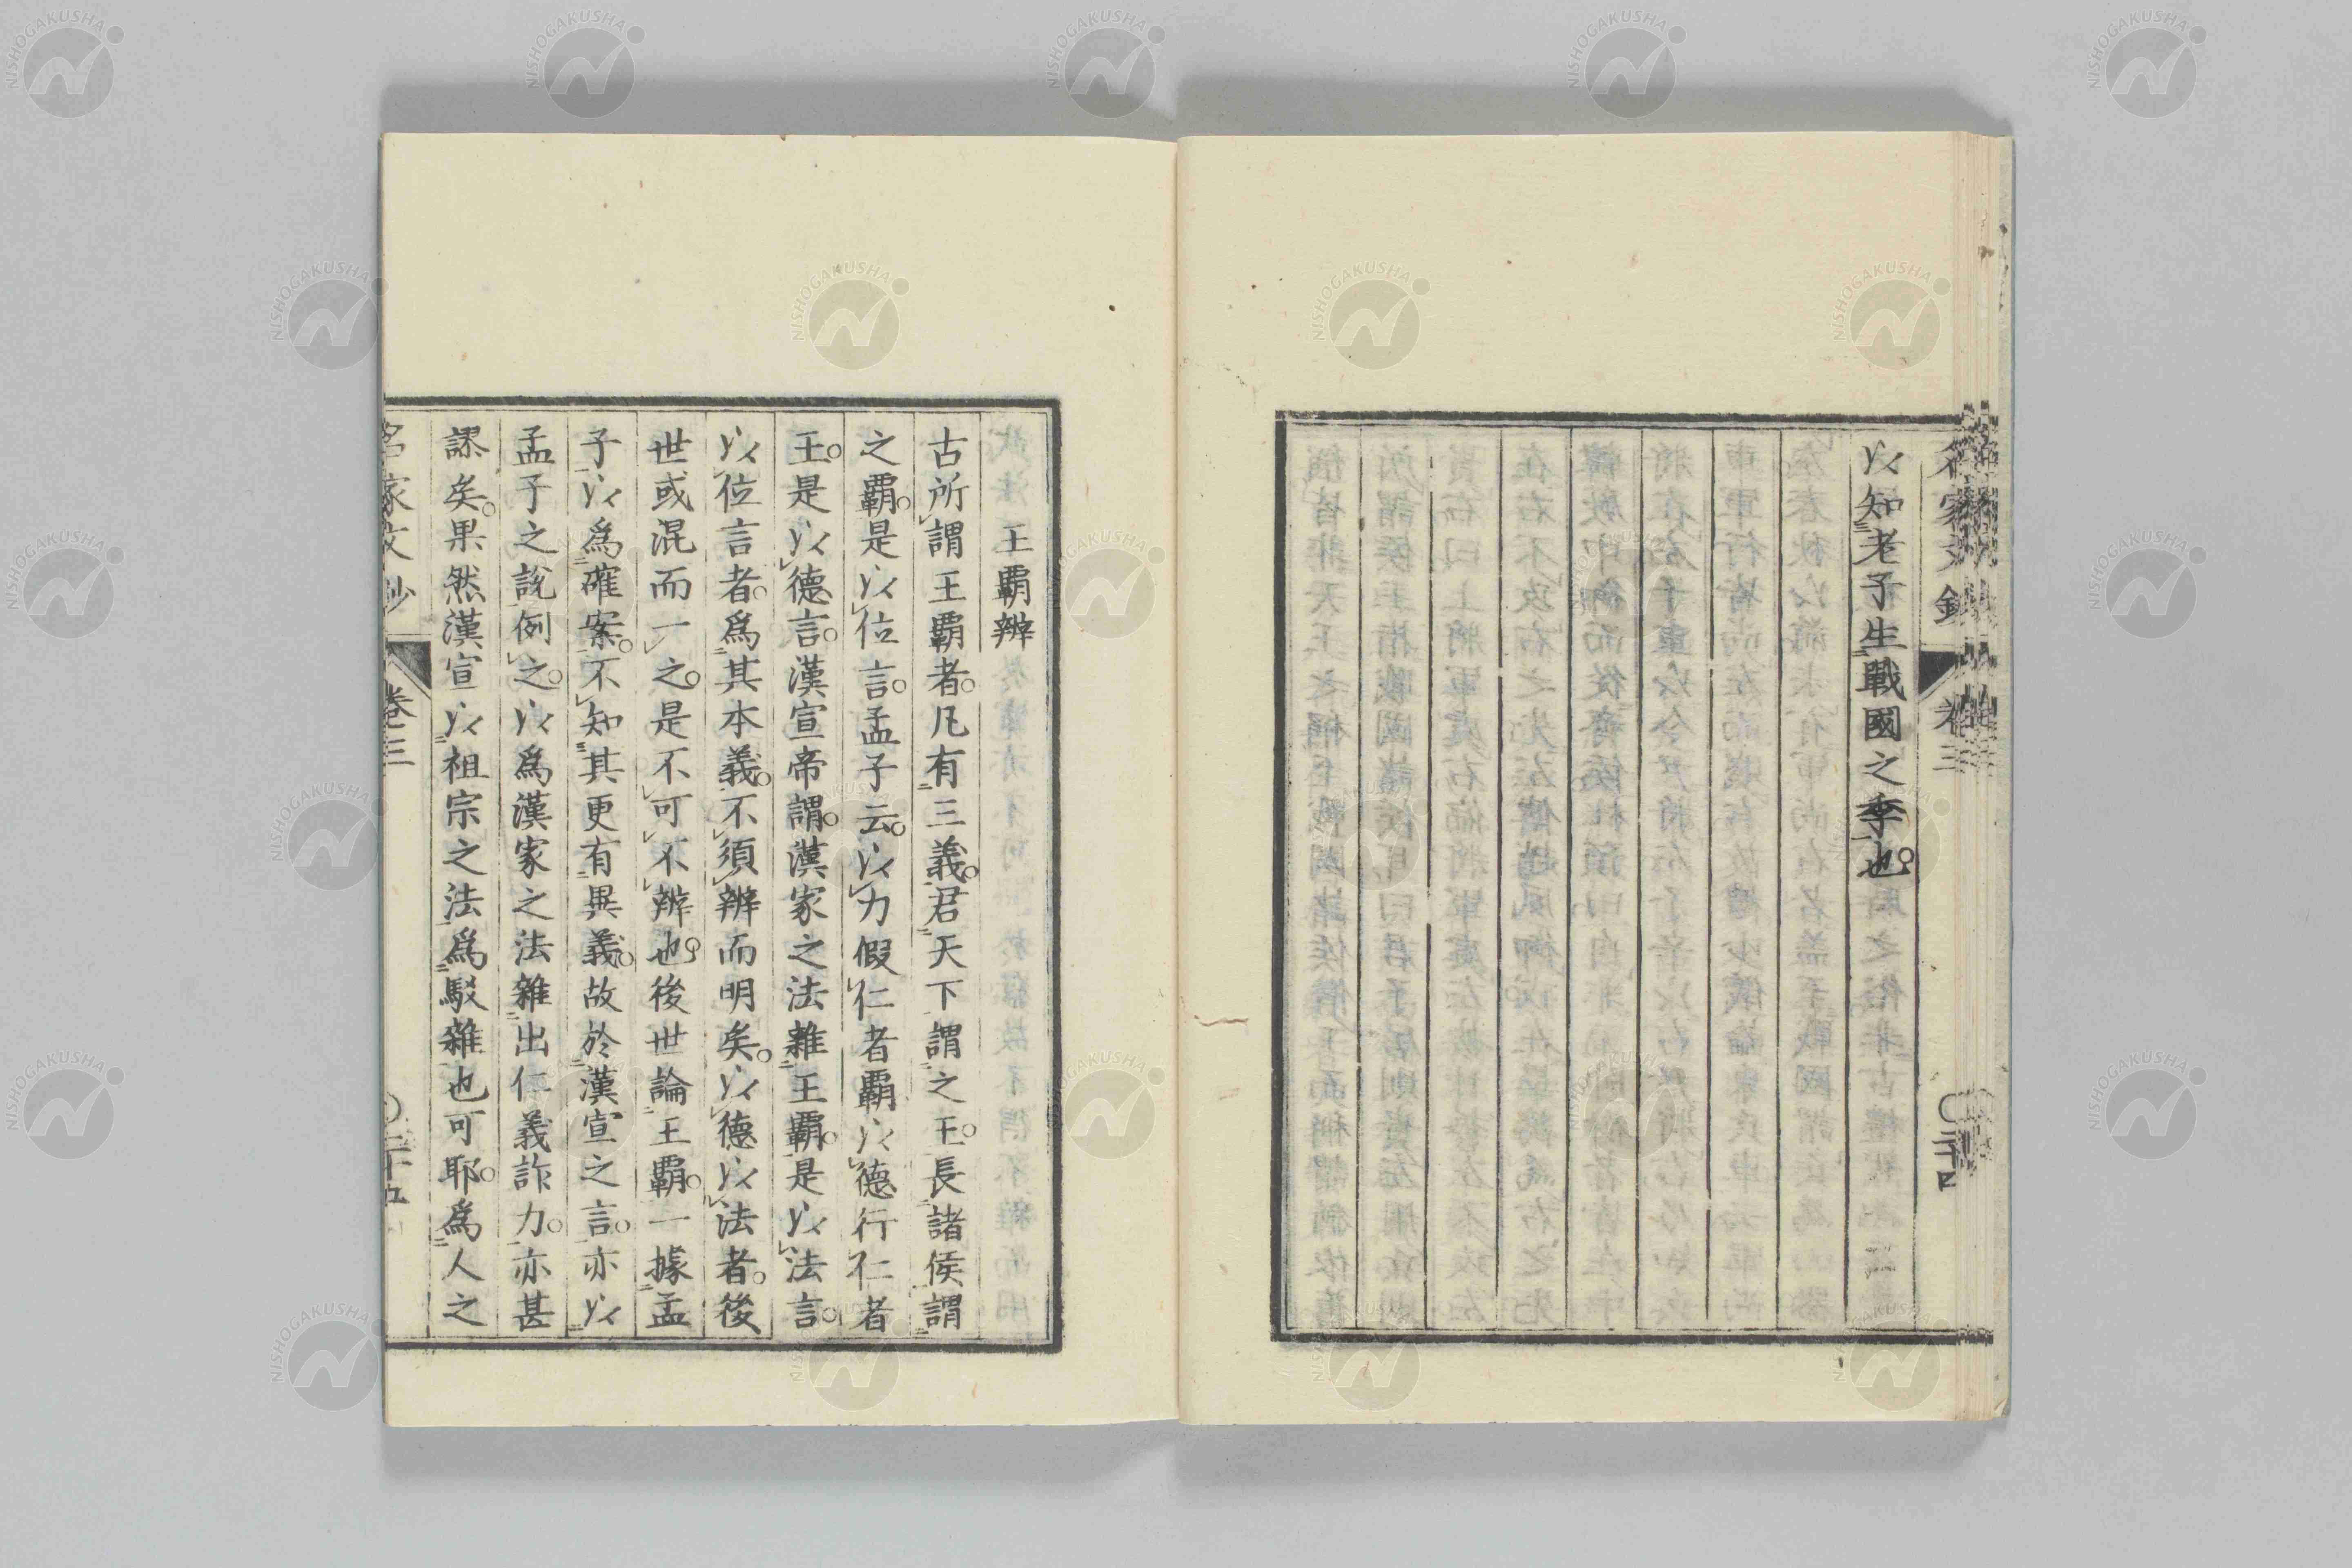 名家文鈔 卷三 〇二十四
以知老子生戰國之季也。
王覇辨
古所謂王覇者。凡有三義。君天下謂之王。長諸侯謂
之覇。是以位言。孟子云。以力假仁者覇以德行仁者
王。是以德言。漢宣帝謂。漢家之法雜王覇。是以法言。
以位言者。爲其本義。不須辨而明矣。以德以法者。後
世或混而一之。是不可不辨也。後世論王覇。一據孟
子以爲確案。不知其更有異義。故於漢宣之言。亦以
孟子之說例之。以爲漢家之法雜出仁義詐力。亦甚
謬矣。果然漢宣以祖宗之法爲駁雜也可耶。爲人之
名家文鈔 卷三 〇二十五
NISHOGAKUSHA